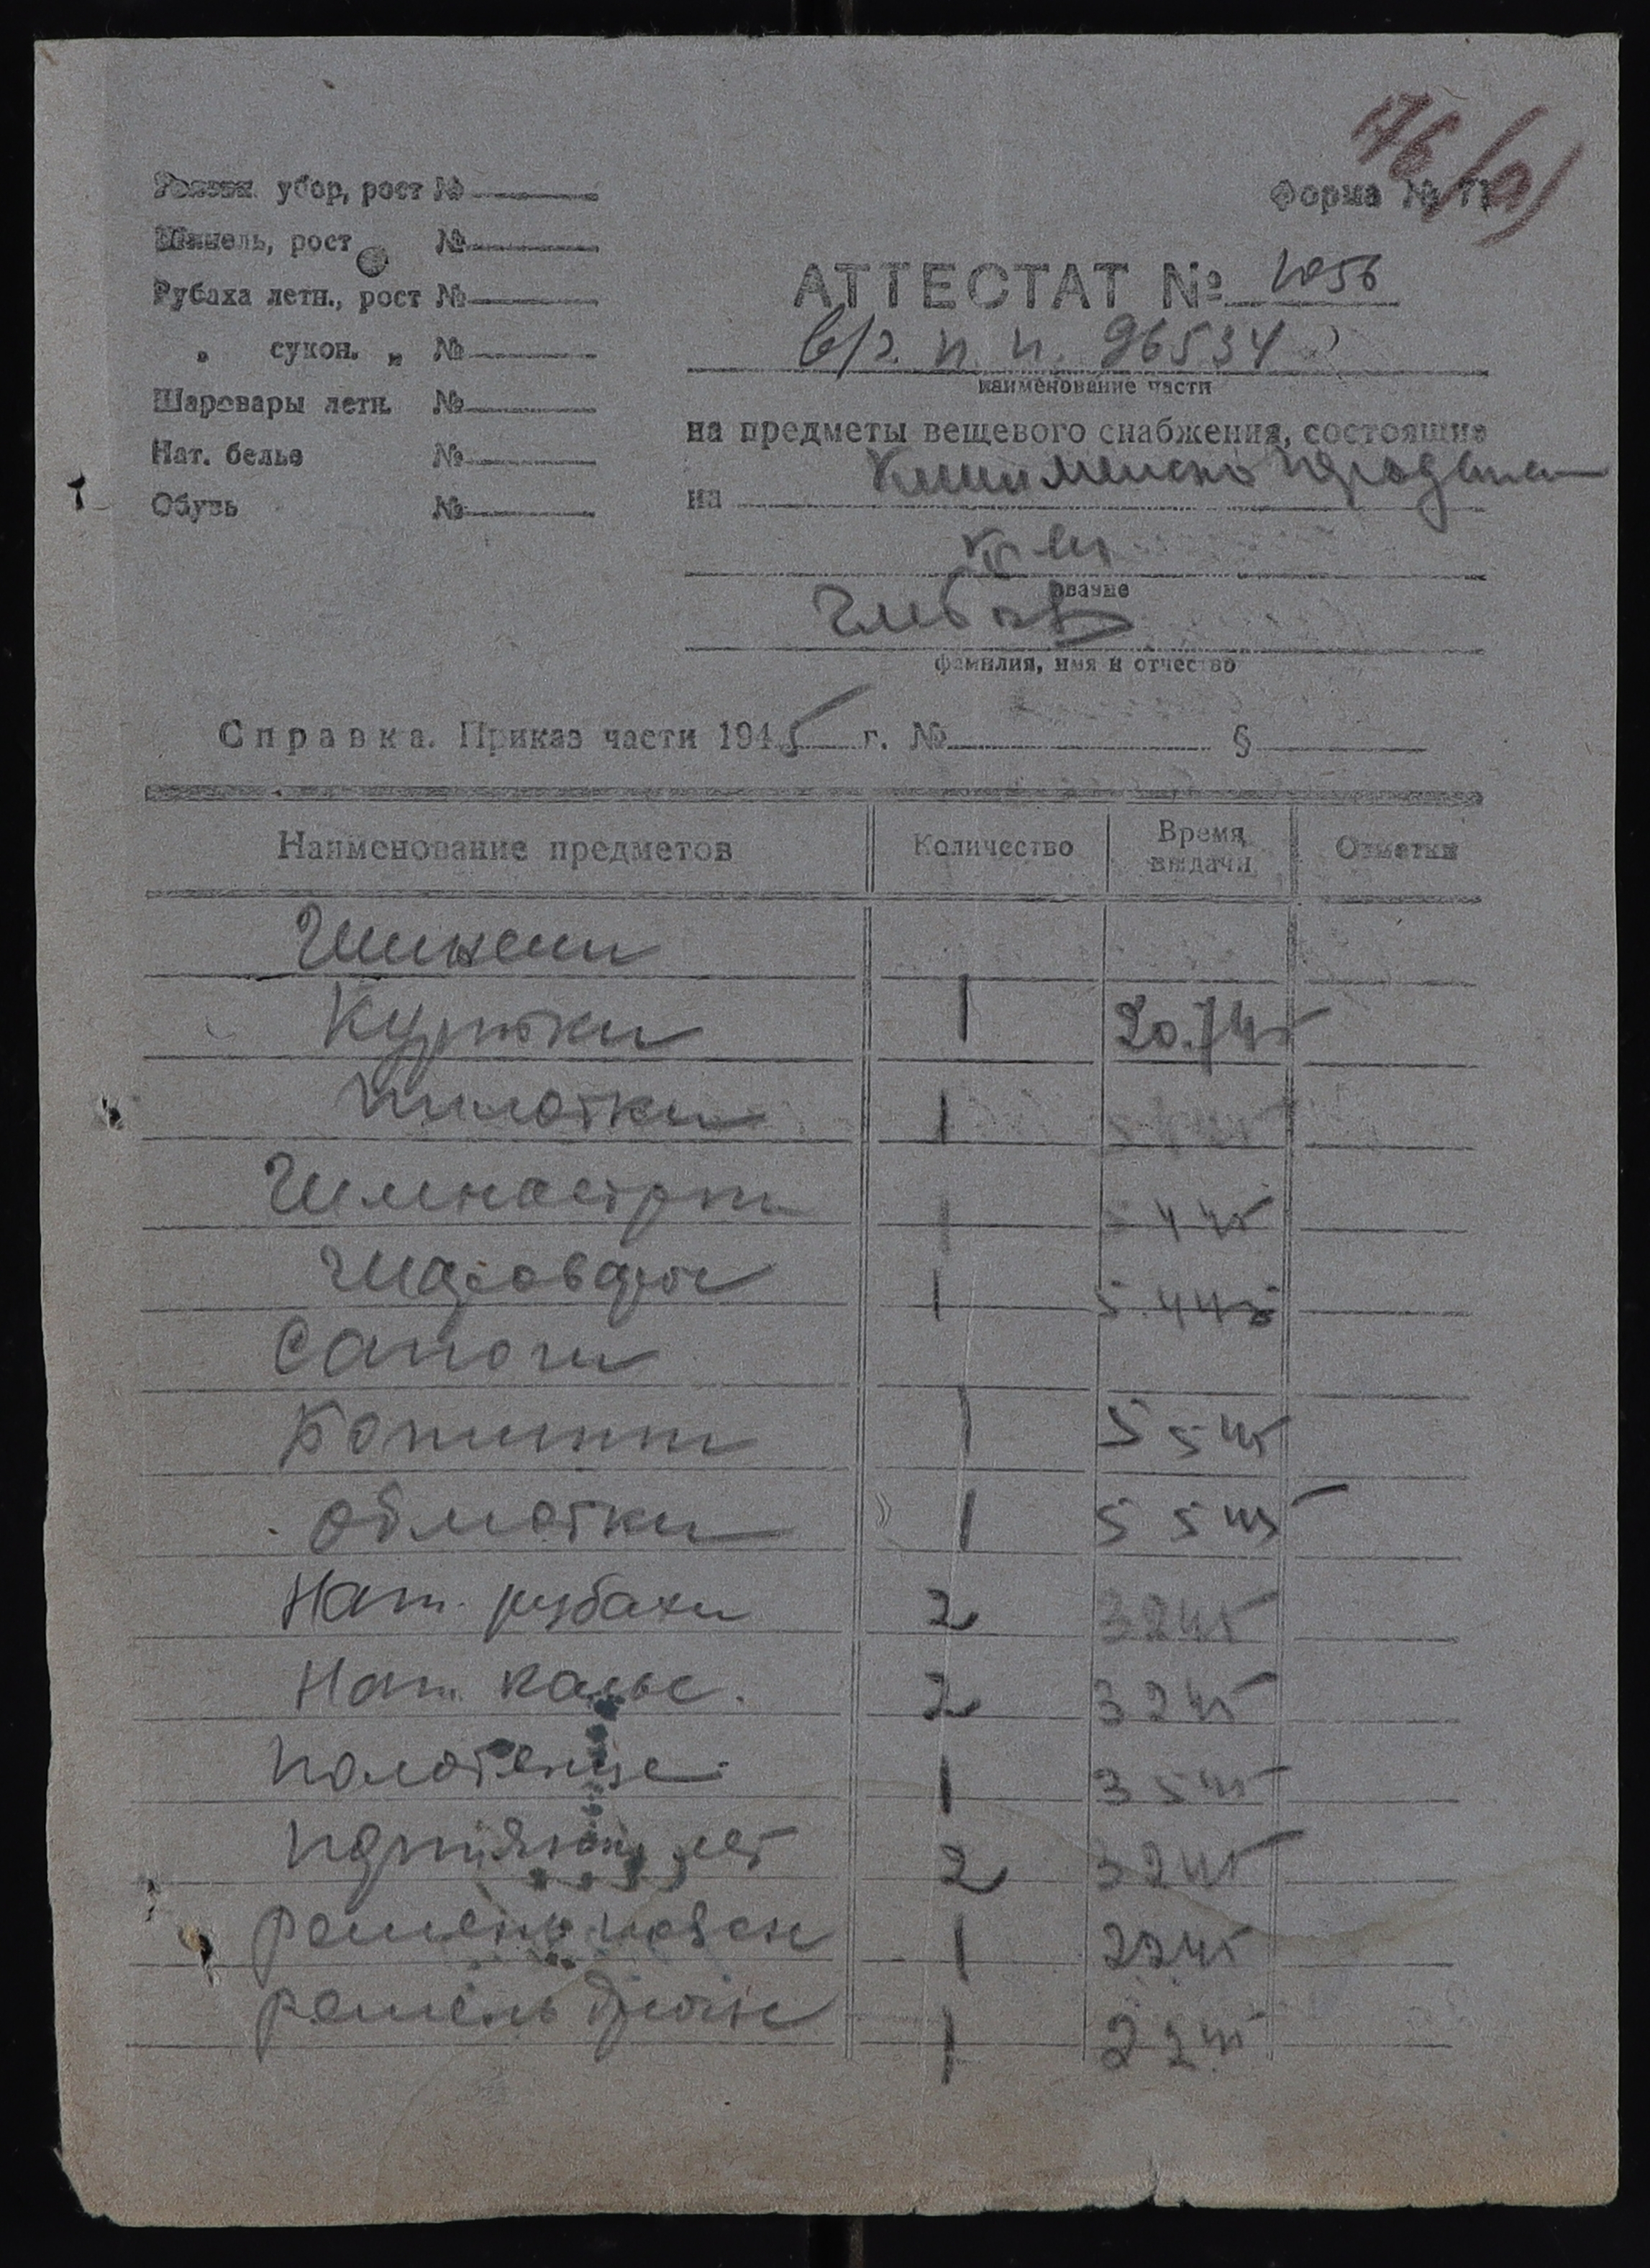 176(а)
Головн. убор, рост №
Форма № 71
Шинель, рост №
АТТЕСТАТ № 1056
Рубаха летн., рост №
в/г п. п. 96534
„ сукон. „ №
наименование части
Шаровары летн. №
на предметы вещевого снабжения, состоящие
Нат. белье №
на
Обувь №
звание
фамилия, имя и отчество
Справка. Приказ части 1945 г. № §
Наименование предметов Количество Время выдачи Отметки
Шинели
Куртки 1 20.7 45
Пилотки 1
Гимнастрки 1 5 4 45
Шаровары 1 5.4 45
Сапоги
Ботинки 1 5 5 45
Обмотки 1 5 5 45
Нат. рубахи 2 3 2 45
Нат. кальс. 2 3 2 45
Полотенце 1 3 5 45
лет 2 3 2 45
Ремень 1 2 2 45
Ремень 1 2 2 45